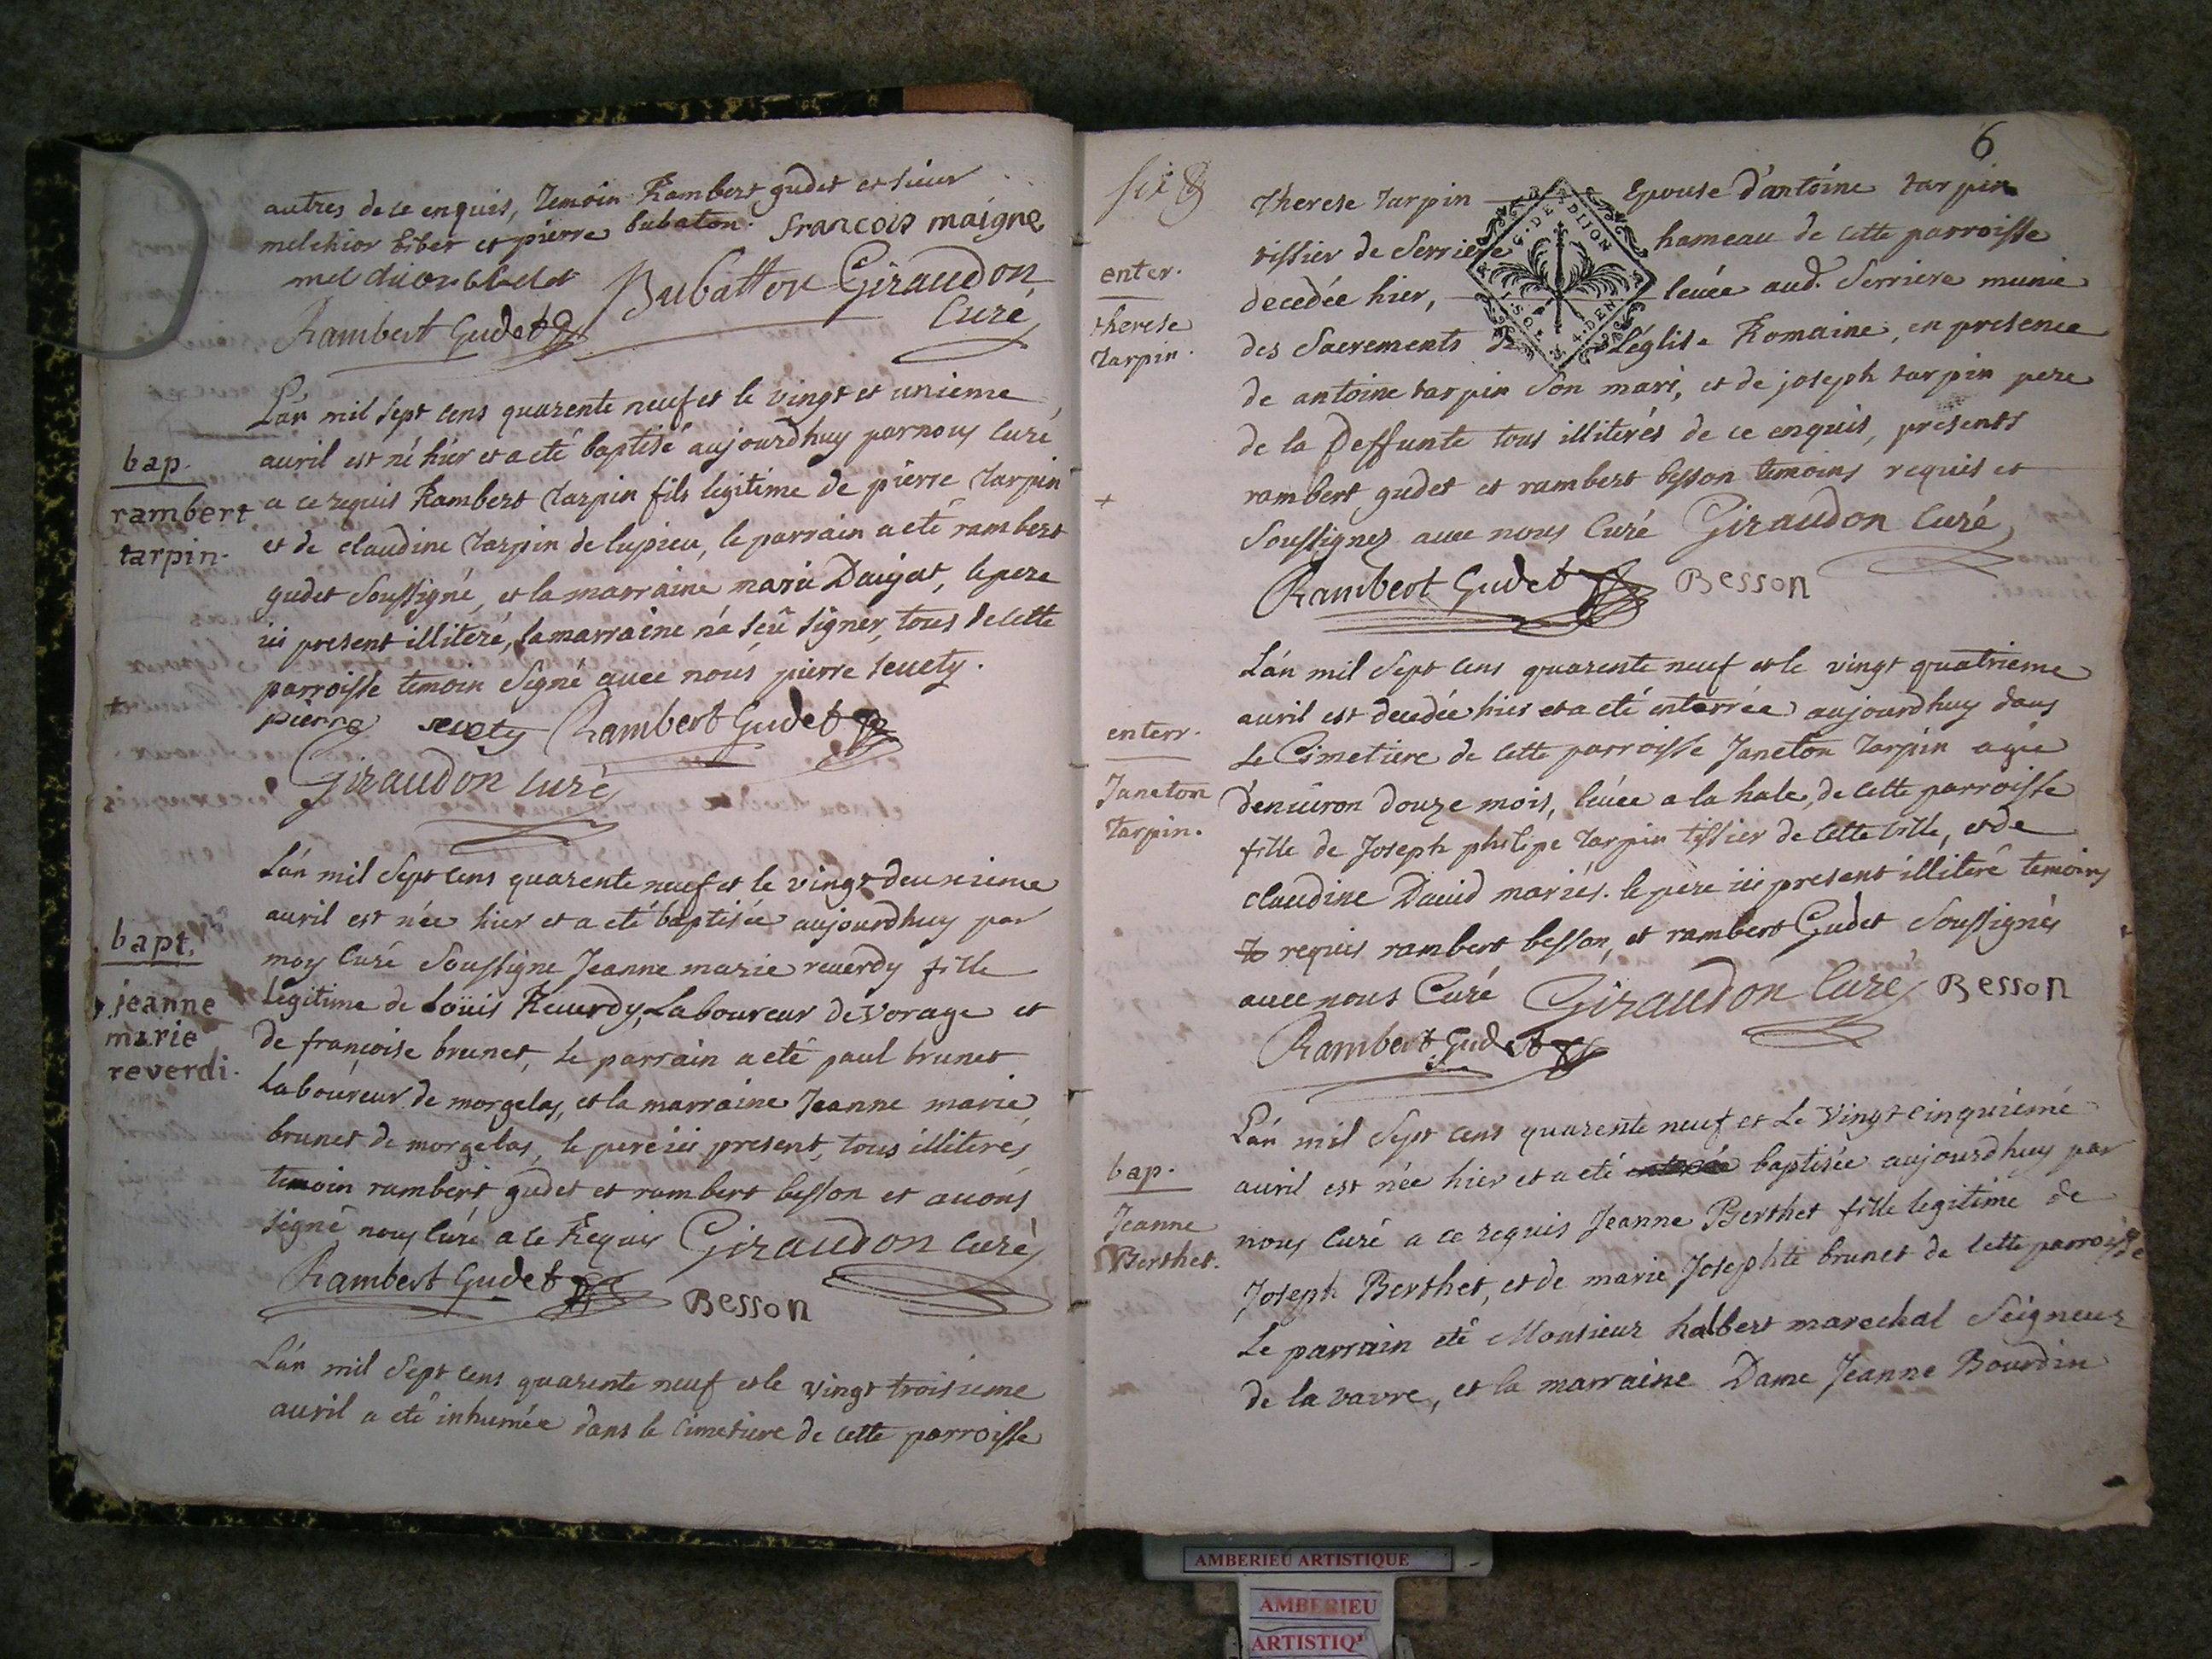 autres de ce enquis, temoin Rambert gudet et sieur
melchior bibet et pierre bubaton. francois maigne
Bubatton Giraudon
Curé
Rambert Gudet
L'an mil sept cens quarente neuf et le vingt et unieme
avril est né hier et a eté baptisé aujourdhuy par nous Curé
bap.
a ce requis Rambert tarpin fils legitime de pierre tarpin
rambert
tarpin.
et de claudine tarpin de lupieu, le parrain a eté rambert
gudet soussigné, et la marraine marie Daigat, le pere
ici present illiteré, la marraine n'a sçû signer, tous de cette
parroisse temoin signé avec nous pierre sevety.
pierre sevety Rambert Gudet
Giraudon curé
L'an mil sept cens quarente neuf et le vingt deuxieme
avril est née hier et a eté baptisée aujourdhuy par
bapt.
moy Curé soussigne Jeanne marie reverdy fille
jeanne
marie
reverdi.
legitime de Loüis Reverdy, Laboureur de vorage et
de francoise brunet, le parrain a eté paul brunet
Laboureur de morgelas, et la marraine Jeanne marie
brunet de morgelas, le pere ici present, tous illiterés
temoin rambert gudet et rambert besson et avons
signé nous Curé a ce Requis Giraudon curé
Rambert Gudet Besson
L'an mil sept cens quarente neuf et le vingt troisieme
avril a eté inhumée dans le cimetiere de cette parroisse
6
six
therese tarpin Epouse d'antoine tarpin
G. DE DIJON
tissier de Serriere hameau de cette parroisse
enter.
therese
tarpin.
decedée hier, levée aud. Serriere munie
des Sacrements de L'eglise Romaine, en presence
de antoine tarpin son mari, et de joseph tarpin pere
de la deffunte tous illiterés de ce enquis, presents
rambert gudet et rambert besson temoins requis et
soussignez avec nous Curé Giraudon Curé
Rambert Gudet Besson
L'an mil sept cens quarente neuf et le vingt quatrieme
avril est decedée hier et a eté enterrée aujourdhuy dans
enterr.
le Cimetiere de cette parroisse Janeton tarpin agée
Janeton
tarpin.
d'environ douze mois, levée a la hale, de cette parroisse
fille de Joseph philipe tarpin tissier de cette ville, et de
claudine David mariés. le pere ici present illiteré temoins
requis rambert besson, et rambert Gudet soussignés
avec nous Curé Giraudon Curé Besson
Rambert Gudet
L'an mil sept cens quarente neuf et Le vingt cinquiéme
avril est née hier et a eté baptisée aujourdhuy par
bap.
Jeanne
Berthet.
nous Curé a ce requis Jeanne Berthet fille legitime de
Joseph Berthet, et de marie Josephte brunet de cette parroisse
Le parrain eté Monsieur halbert marechal Seigneur
de la vavre, et la marraine Dame Jeanne Bourdin
AMBERIEU ARTISTIQUE
AMBERIEU
ARTISTIQ